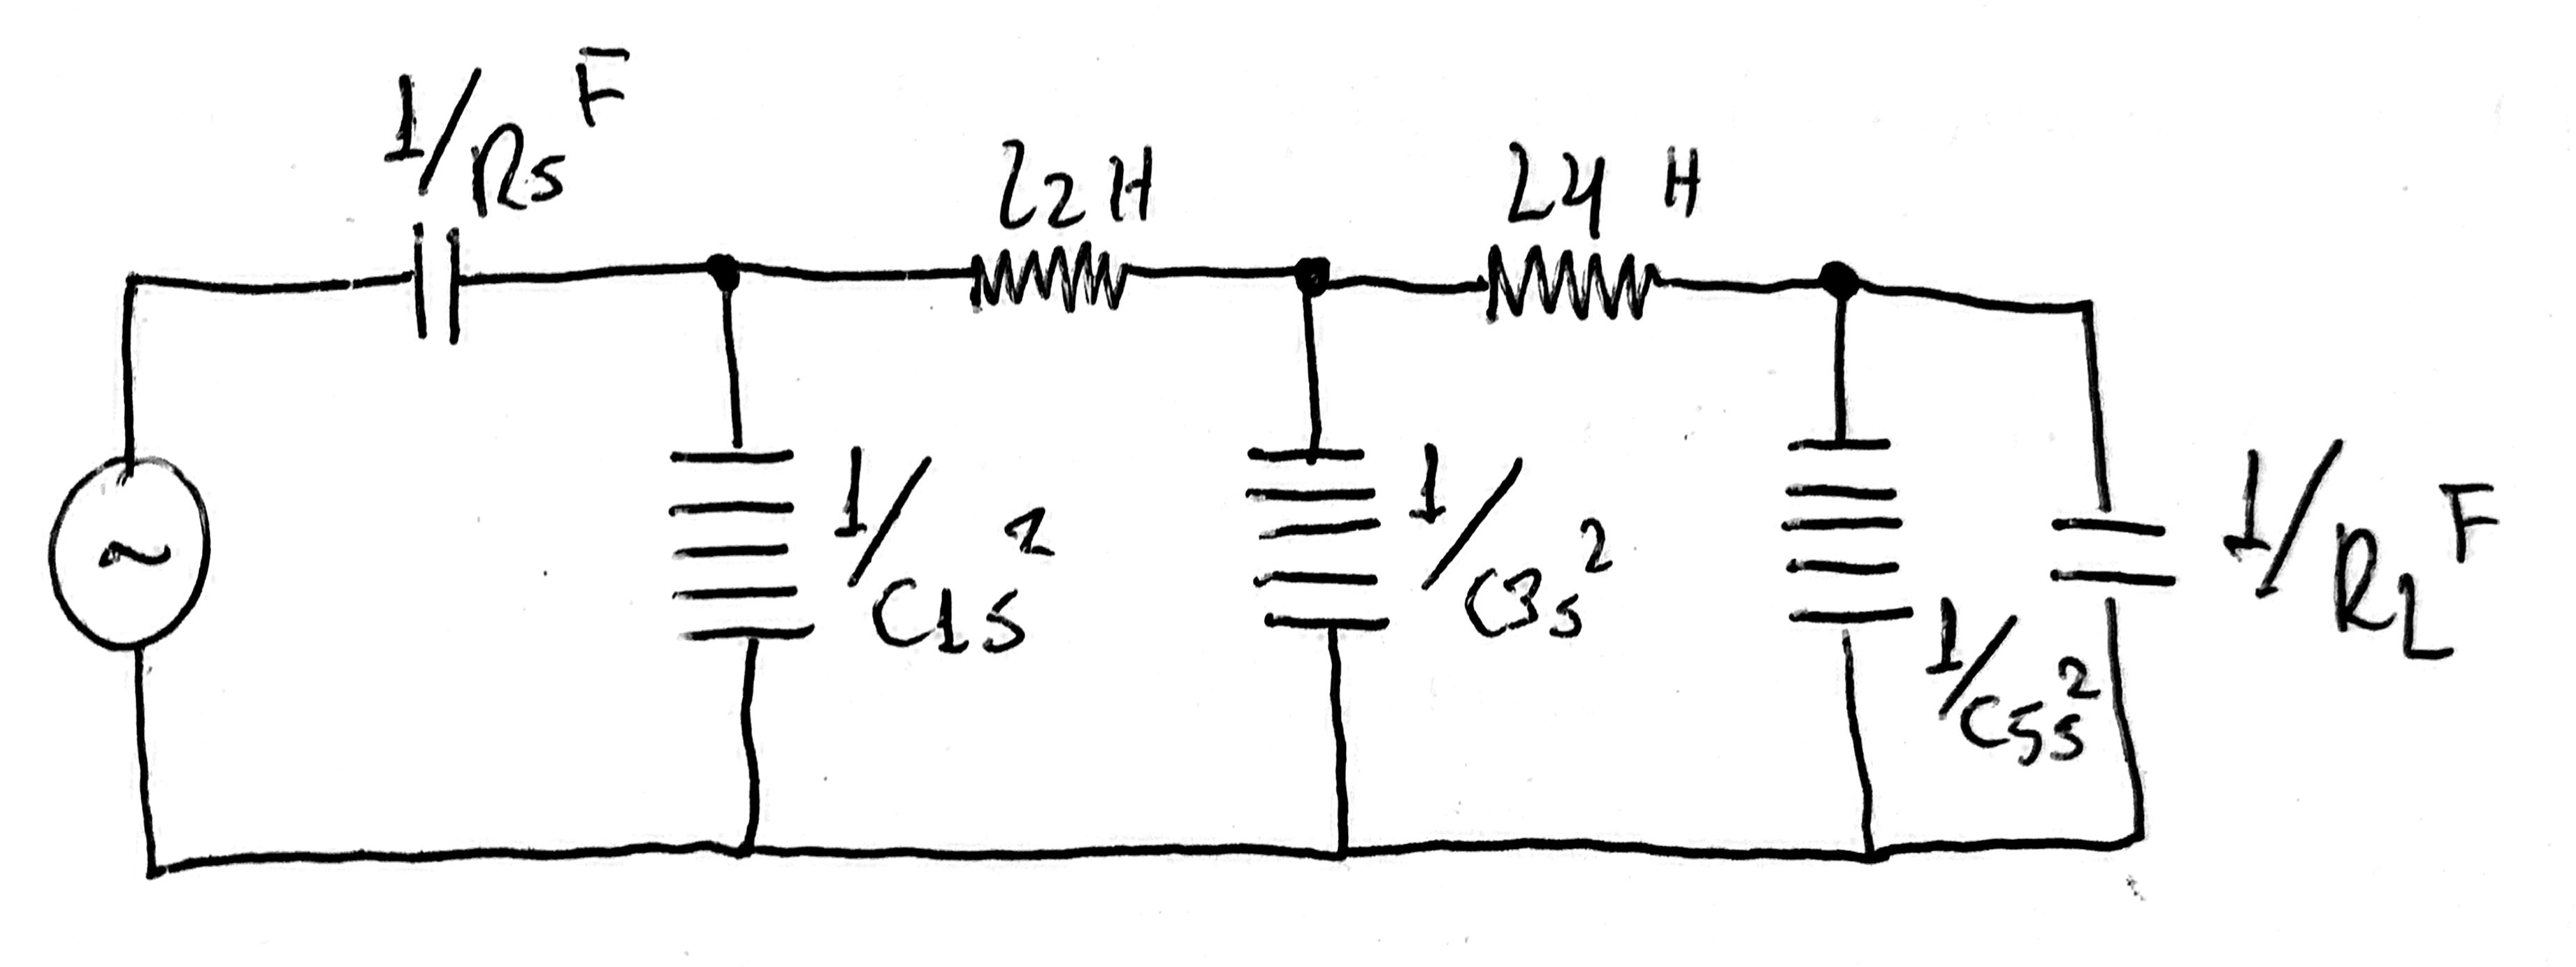 1/Rs F
L2 H
L4 H
~
1/C1s²
1/C3s²
1/C5s²
1/RL F